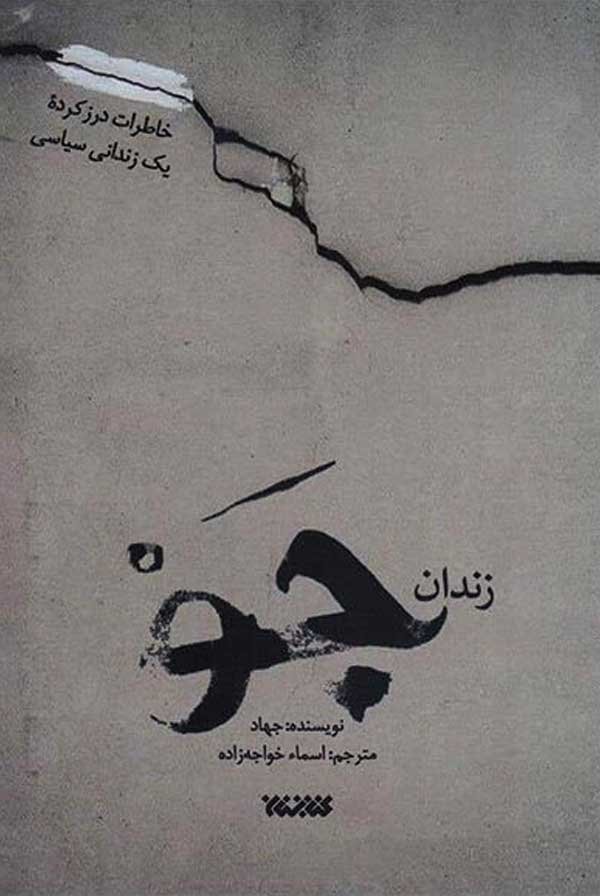 خاطرات درز کردهٔ
یک زندانی سیاسی
زندان
جَوْ
نویسنده: جهاد
مترجم: اسماء خواجه‌زاده
کتابستان